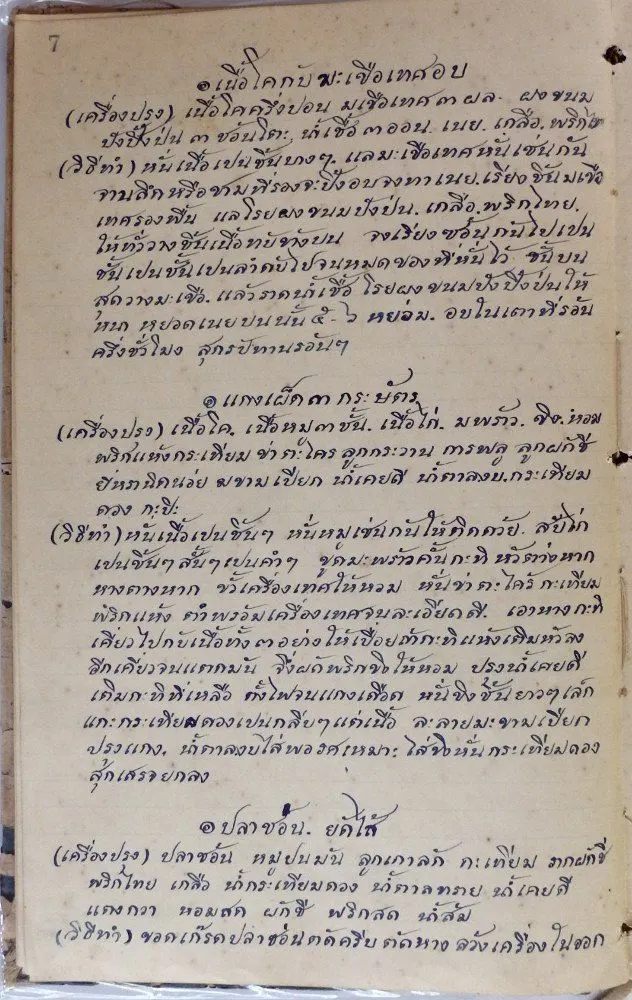 7
๏ เนื้อโคกับมะเขือเทศอบ
(เครื่องปรุง) เนื้อโคครึ่งปอน มเขือเทศ ๓ ผล. ผงขนม
ปังปิ้งป่น ๓ ช้อนโตะ น้ำเชื้อ ๓ ออน. เนย. เกลือ. พริกไทย
(วิธีทำ) หั่นเนื้อเปนชิ้นบางๆ. แลมะเขือเทศหั่นเช่นกัน
จานลึกหรือชามที่รองจะปิ้งอบจงทาเนย. เรียงชิ้นมเขือ
เทศรองพื้น แลโรยผงขนมปังป่น. เกลือ. พริกไทย.
ให้ทั่ววางชิ้นเนื้อทับข้างบน จงเรียงซอ้นกันไปเปน
ชั้นเปนชั้นเปนลำดับไปจนหมดของที่หั่นไว้ ชั้นบน
สุดวางมะเขือ. แล้วราดน้ำเชื้อ โรยผงขนมปังปิ้งป่นให้
หนา หยอดเนยบนนั้น ๕-๖ หย่อม. อบในเตาที่รอ้น
ครึ่งชั่วโมง สุกรปัทานรอ้นๆ
๏ แกงเผ็ด ๓ กระษัตร
(เครื่องปรุง) เนื้อโค. เนื้อหมู ๓ ชั้น. เนื้อไก่. มพร้าว. ขิง. หอม
พริกแห้งกระเทียม ข่า ตะไคร ลูกกระวาน การพลู ลูกผักชี
ยี่หร่านิดน่อย มขามเปียก น้ำเคยดี น้ำตาลงบ. กระเทียม
ดอง กะปิ
(วิธีทำ) หั่นเนื้อเปนชิ้นๆ หั่นหมูเช่นกันให้ติดด้วย. สับไก่
เปนชิ้นๆ สั้นๆ เปนคำๆ ขูดมะพร้าวคั้นกะทิ หัวต่างหาก
หางตางหาก ขั้วเครื่องเทศให้หอม หั่นข่า ตะไคร้ กะเทียม
พริกแห้ง ตำพรอ้มเครื่องเทศจนละเอียดดี. เอาหางกะทิ
เคี่ยวไปกับเนื้อทั้ง ๓ อย่างให้เปื่อยถ้ากะทิแห้งเติมหัวลง
อีกเคียวจนแตกมัน จึ่งผัดพริกขิงให้หอม ปรุงน้ำเคยดี
เติมกะทิที่เหลือ ตั้งไฟจนแกงเดือด หั่นขิงชิ้นยาวๆ เล็ก
แกะกระเทียมดองเปนกลีบๆ แต่เนื้อ ละลายมะขามเปียก
ปรุงแกง. น้ำตาลงบใส่พอรศเหมาะ ใส่ขิงหั่นกระเทียมดอง
สุกเสรจยกลง
๏ ปลาชอ่น. ยัดไส้
(เครื่องปรุง) ปลาชอ่น หมูปนมัน ลูกเกาลัด กะเทียม รากผักชี
พริกไทย เกลือ น้ำกระเทียมดอง น้ำตาลทราย น้ำเคยดี
แตงกวา หอมสด ผักชี พริกสด น้ำส้ม
(วิธีทำ) ขอดเก๊รดปลาชอ่นตัดครีบ ตัดหาง ลว้งเครื่องในออก